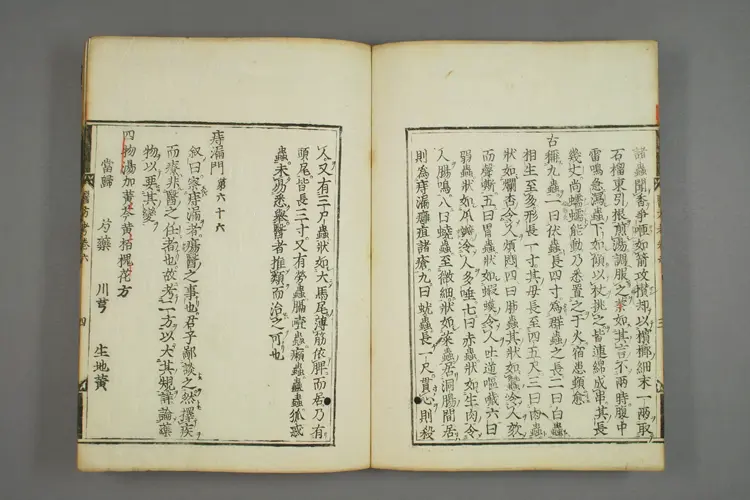 諸蟲聞香爭咂如箭攻攢却以檳榔細末一兩取
石榴東引根煎湯調服之素如其言不兩時腹中
雷鳴急瀉蟲下如傾以杖挑之皆連綿成串其長
幾丈尚蠕蠕能動乃悉置之于火宿患頓愈
古稱九蟲一曰伏蟲長四寸為群蟲之長二曰白蟲
相生至多形長一寸其母長至四五尺三曰肉蟲
狀如爛杏令人煩悶四曰肺蟲其狀如蠶令人欬
而聲嘶五曰胃蟲狀如蝦蟆令人吐逆嘔噦六曰
弱蟲狀如瓜瓣令人多唾七曰赤蟲狀如生肉令
人腸鳴八曰蟯蟲至微細狀如菜蟲居洞腸間居
則為痔漏癰疽諸瘡九曰蚘蟲長一尺貫心則殺
人又有三尸蟲狀如大馬尾薄筋依脾而居乃有
頭尾皆長三寸又有勞蟲膈噎蟲癩蟲蠱蟲狐惑
蟲未及悉舉醫者推類而治之可也
痔漏門 第六十六
叙曰察痔漏者瘍醫之事也君子鄙談之然擇疾
而療非醫之任者也故考一方以大其規評諭藥
物以要其變
四物湯加黃芩黃栢槐花方
當歸 芍藥 川芎 生地黃
醫方考卷六 四